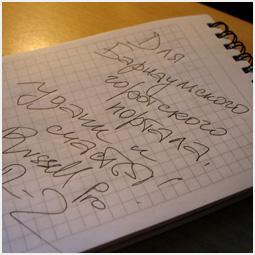 Для
Барнаульского
городского
портала.
Удачи и
счастья!
Russell Pro